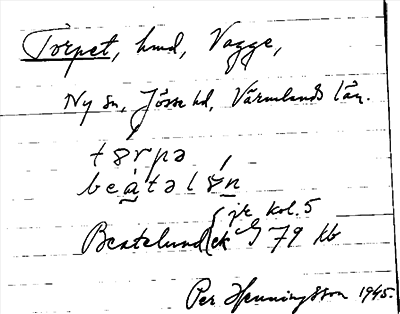 Torpet, hmd, Vagge,
Ny sn, Jösse hd, Värmlands län.
tørpə
beàtəlún
jk kol. 5
Beatelund (ek G 79 kb
Per Henningsson 1945.